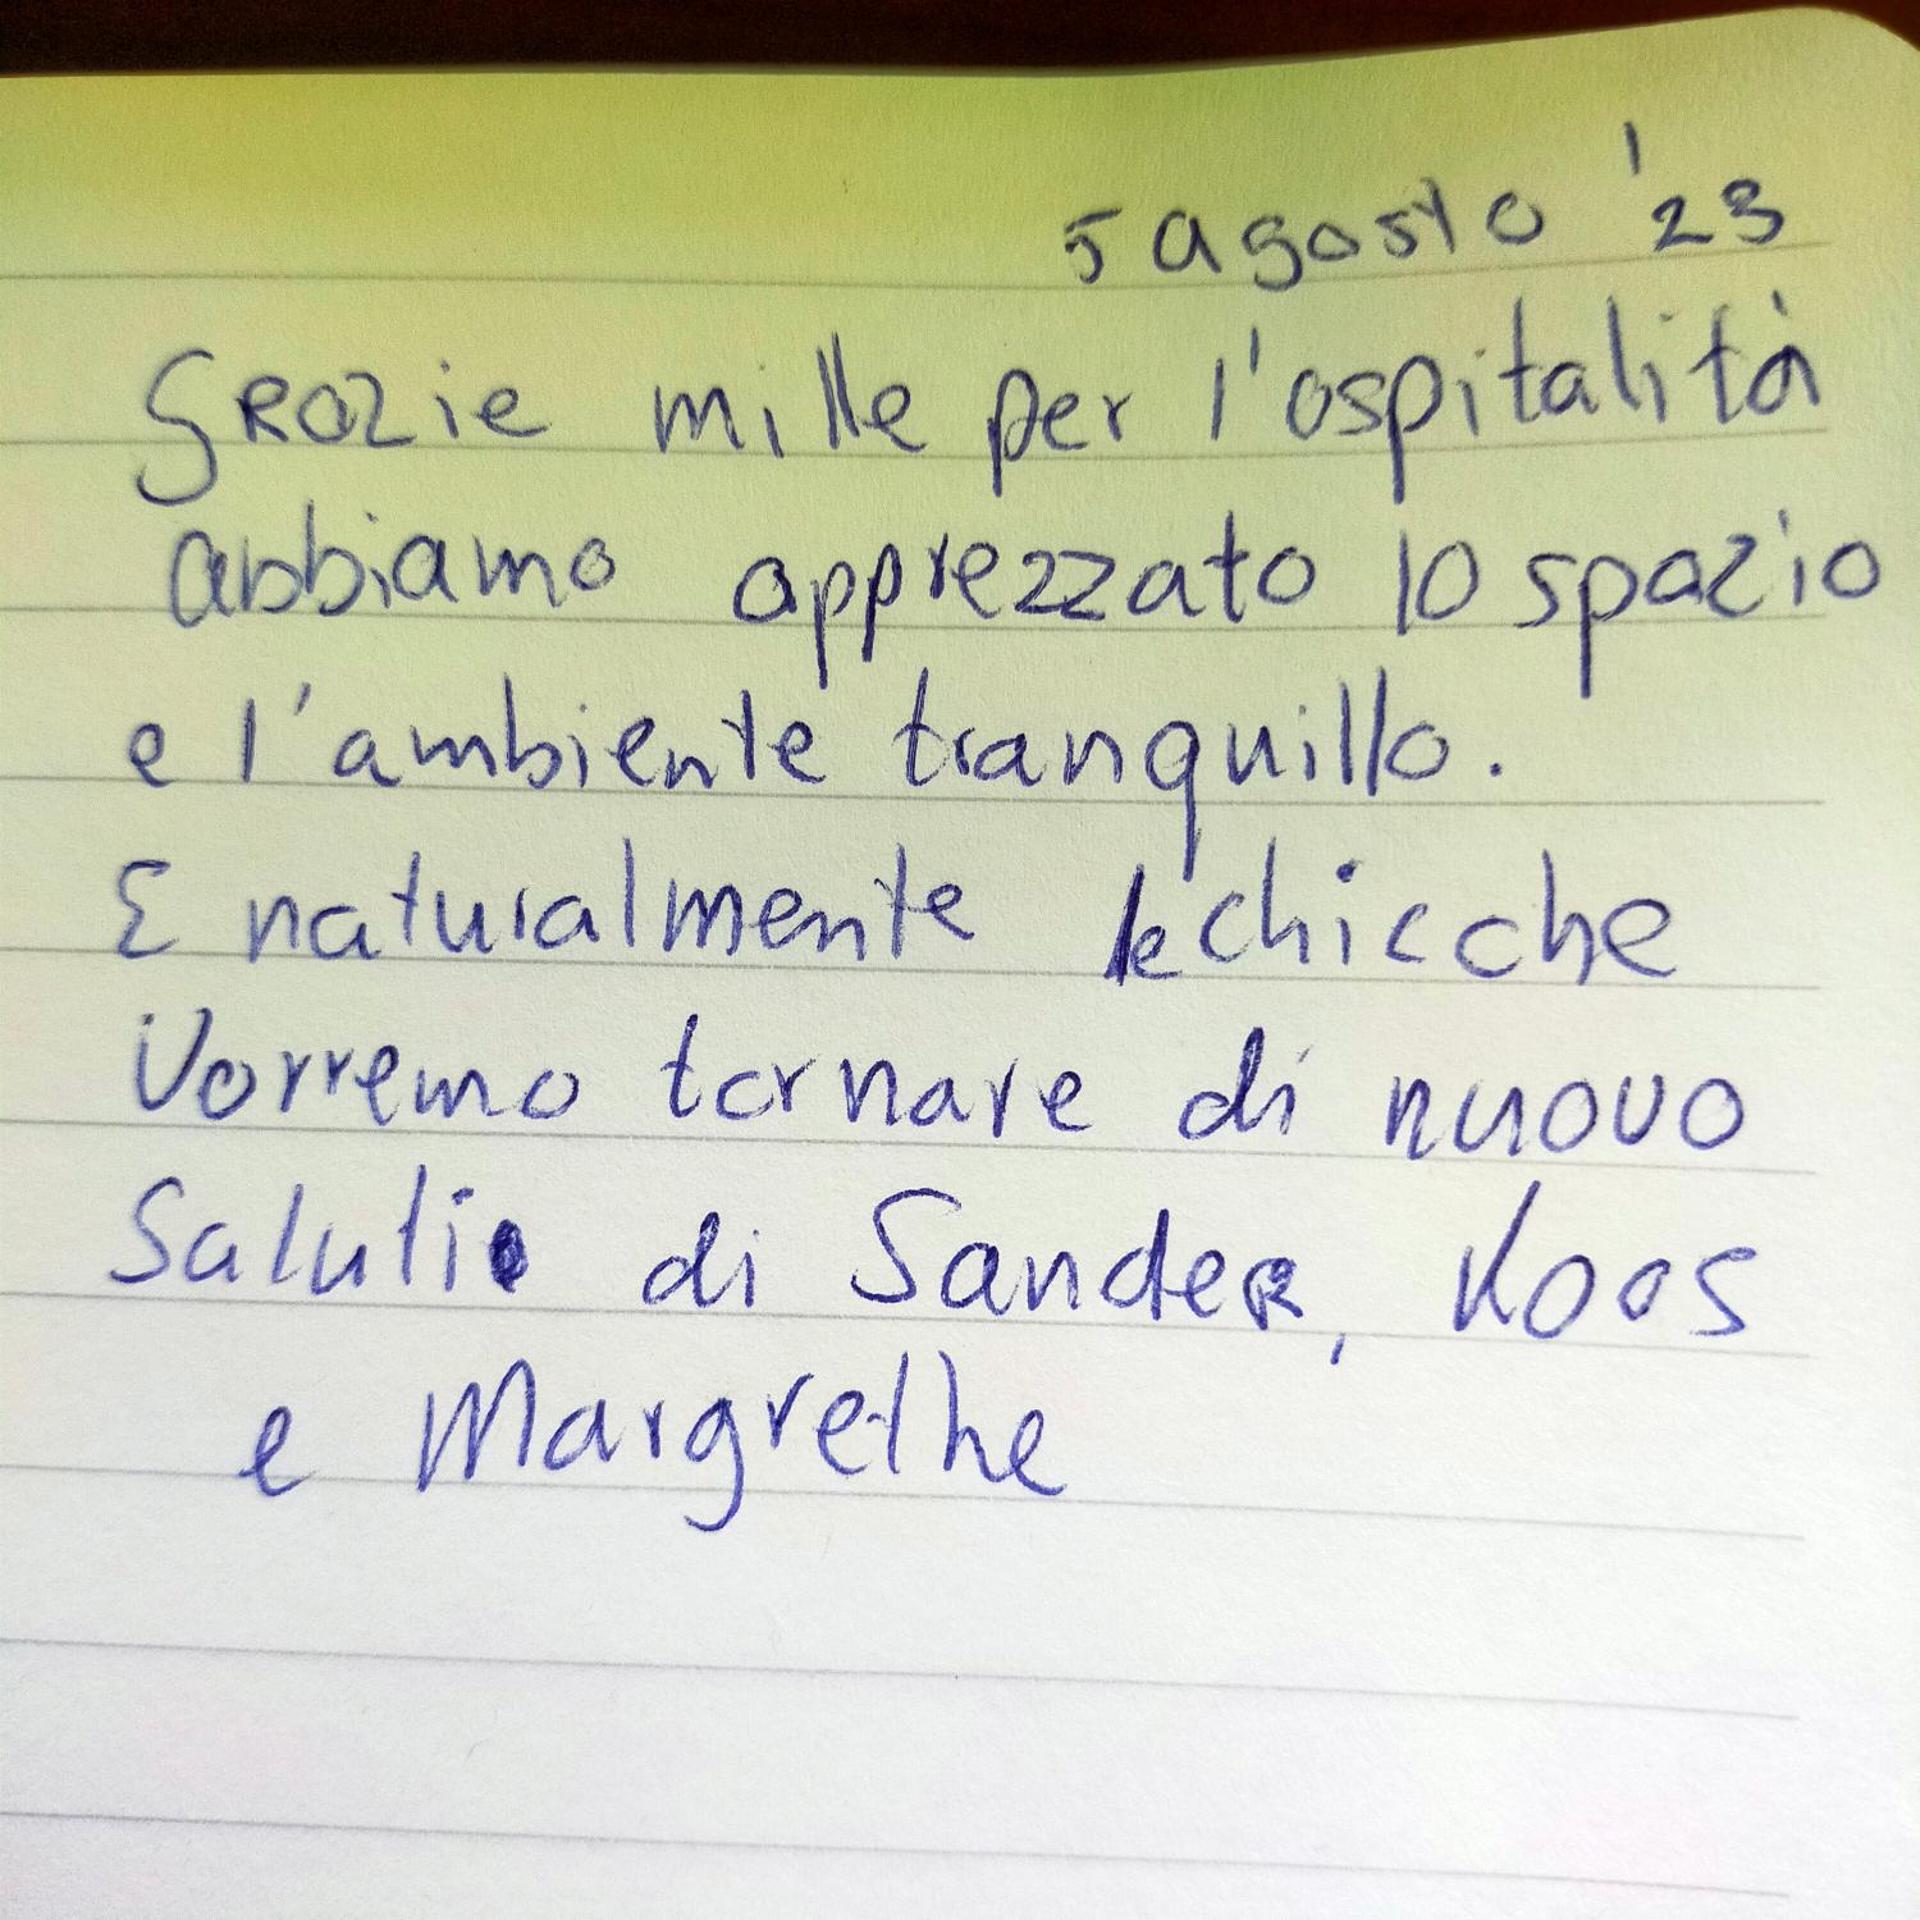 5 agosto '23
Grazie mille per l'ospitalità
abbiamo apprezzato lo spazio
e l'ambiente tranquillo.
E naturalmente le chicche
Vorremo tornare di nuovo
Saluti di Sander, Koos
e Margrethe